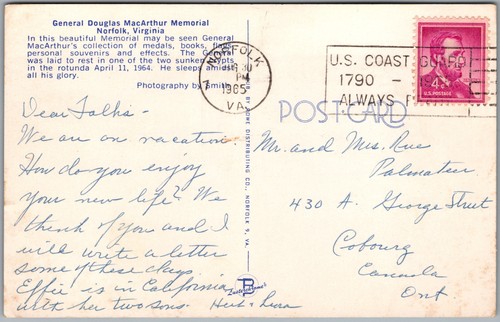 General Douglas MacArthur Memorial
Norfolk, Virginia
In this beautiful Memorial may be seen General
MacArthur's collection of medals, books, flags,
personal souvenirs and effects. The General
was laid to rest in one of the two sunken crypts
in the rotunda April 11, 1964. He sleeps amidst
all his glory.
Photography by Smith
Dear Folks-
We are on vacation
How do you enjoy
your new life? We
think of you and I
will write a letter
some of these days.
Effie is in California
with her two sons. Herb + Lura
NORFOLK
30
PM
1965
VA.
U.S. COAST GUARD
1790 -
ALWAYS
U.S. POSTAGE
POST CARD
DISTRIBUTING CO., NORFOLK 9, VA.
Mr. and Mrs. Rae
Palmateer
430 A. George Street
Cobourg
Canada
Ont.